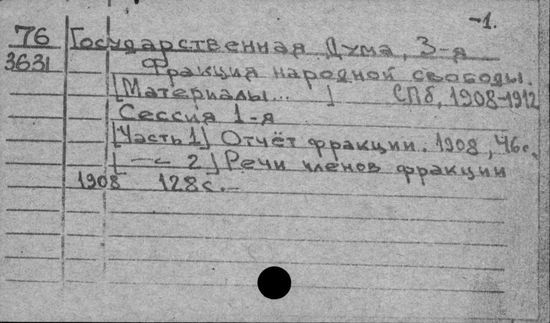 -1.
76 Государственная Дума, 3-я
3631 Фракция народной свободы.
[Материалы... ] СПб, 1908-1912
Сессия 1-я
[Часть 1] Отчёт фракции. 1908, 46с.
[ —〃— 2] Речи членов фракции
1908 128с.—